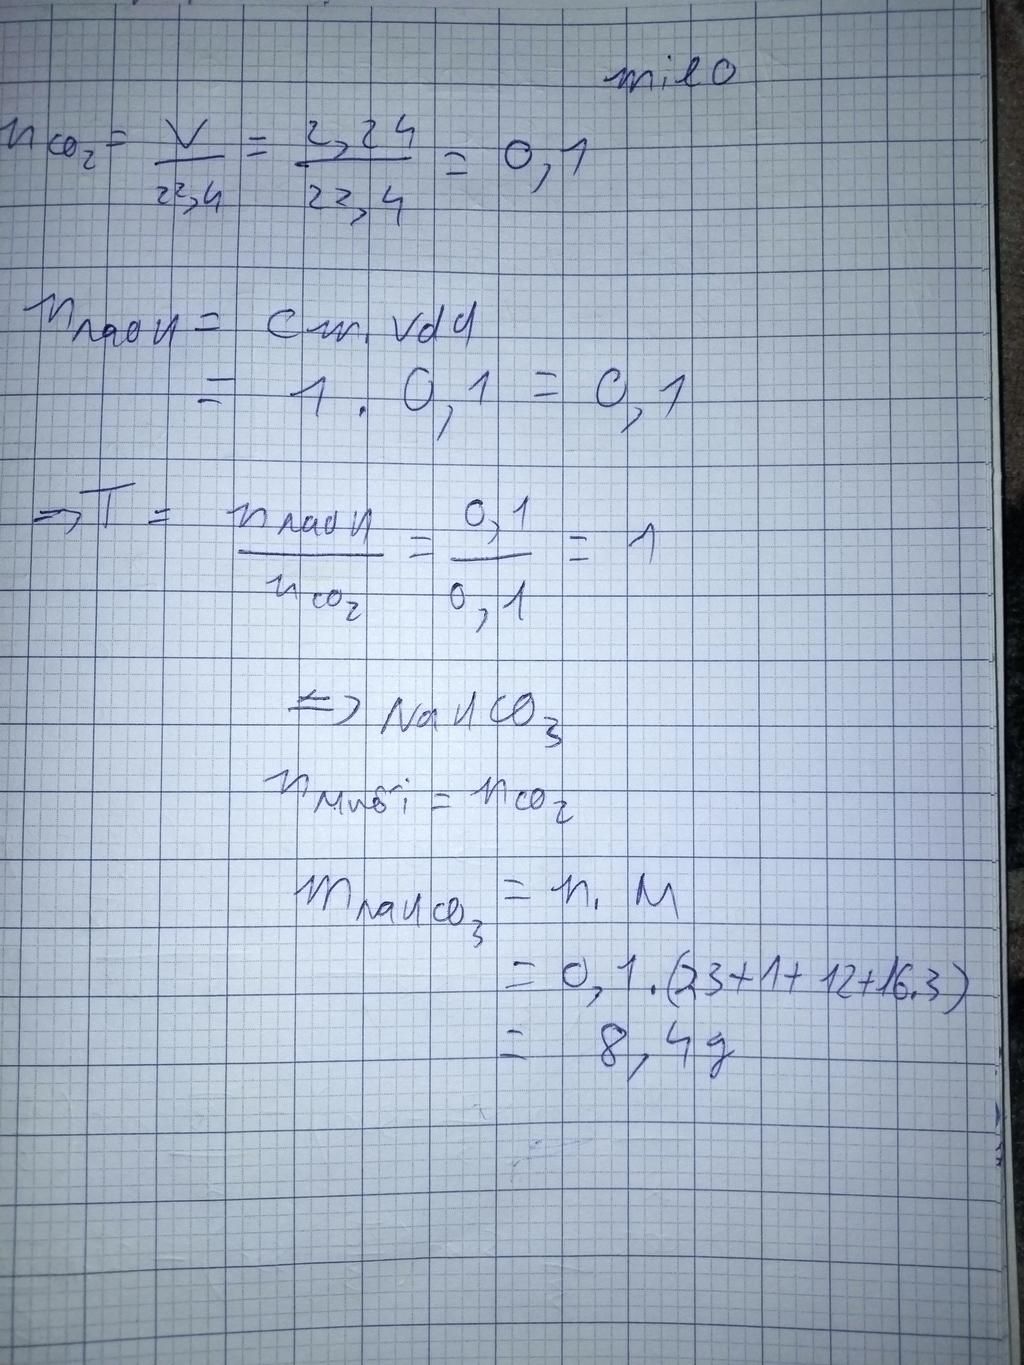 milo
n CO2 = V / 22,4 = 2,24 / 22,4 = 0,1
n NaOH = Cm. Vdd
= 1 . 0,1 = 0,1
=> T = n NaOH / n CO2 = 0,1 / 0,1 = 1
=> NaHCO3
n Muối = n CO2
m NaHCO3 = n. M
= 0,1 . (23+1+12+16.3)
= 8,4g